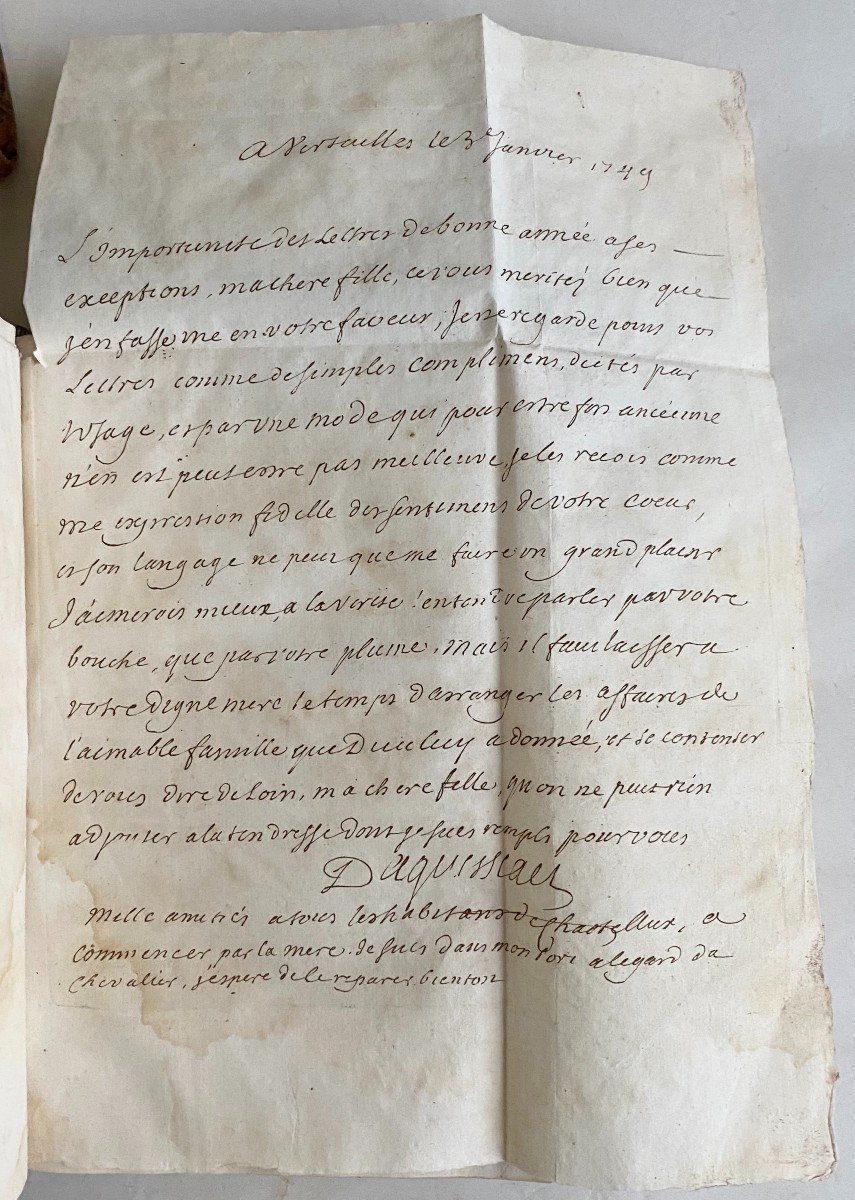 a Versailles le 3e Janvier 1749
L'importunité des Lettres de bonne année a ses
exceptions, ma chere fille, et vous merités bien que
j'en fasse une en votre faveur; je ne regarde point vos
Lettres comme de simples complimens, dictés par
l'Usage, et par une mode qui pour estre fort ancienne
n'en est peut estre pas meilleure, je les recois comme
une expression fidelle des sentimens de votre coeur,
et son langage ne peut que me faire un grand plaisir
J'aimerois mieux, a la verité l'entendre parler par votre
bouche, que par votre plume, mais il faut laisser a
votre digne mere le temps d'arranger les affaires de
l'aimable famille que Dieu luy a donnée, et se contenter
de vous dire de loin, ma chere fille, qu'on ne peut rien
adjouter a la tendresse dont je suis rempli pour vous
Daguesseau
Mille amitiés a tous les habitans de Chastellux, a
commencer par la mere. Je suis dans mon tort a legard du
chevalier, j'espere de le reparer bientost